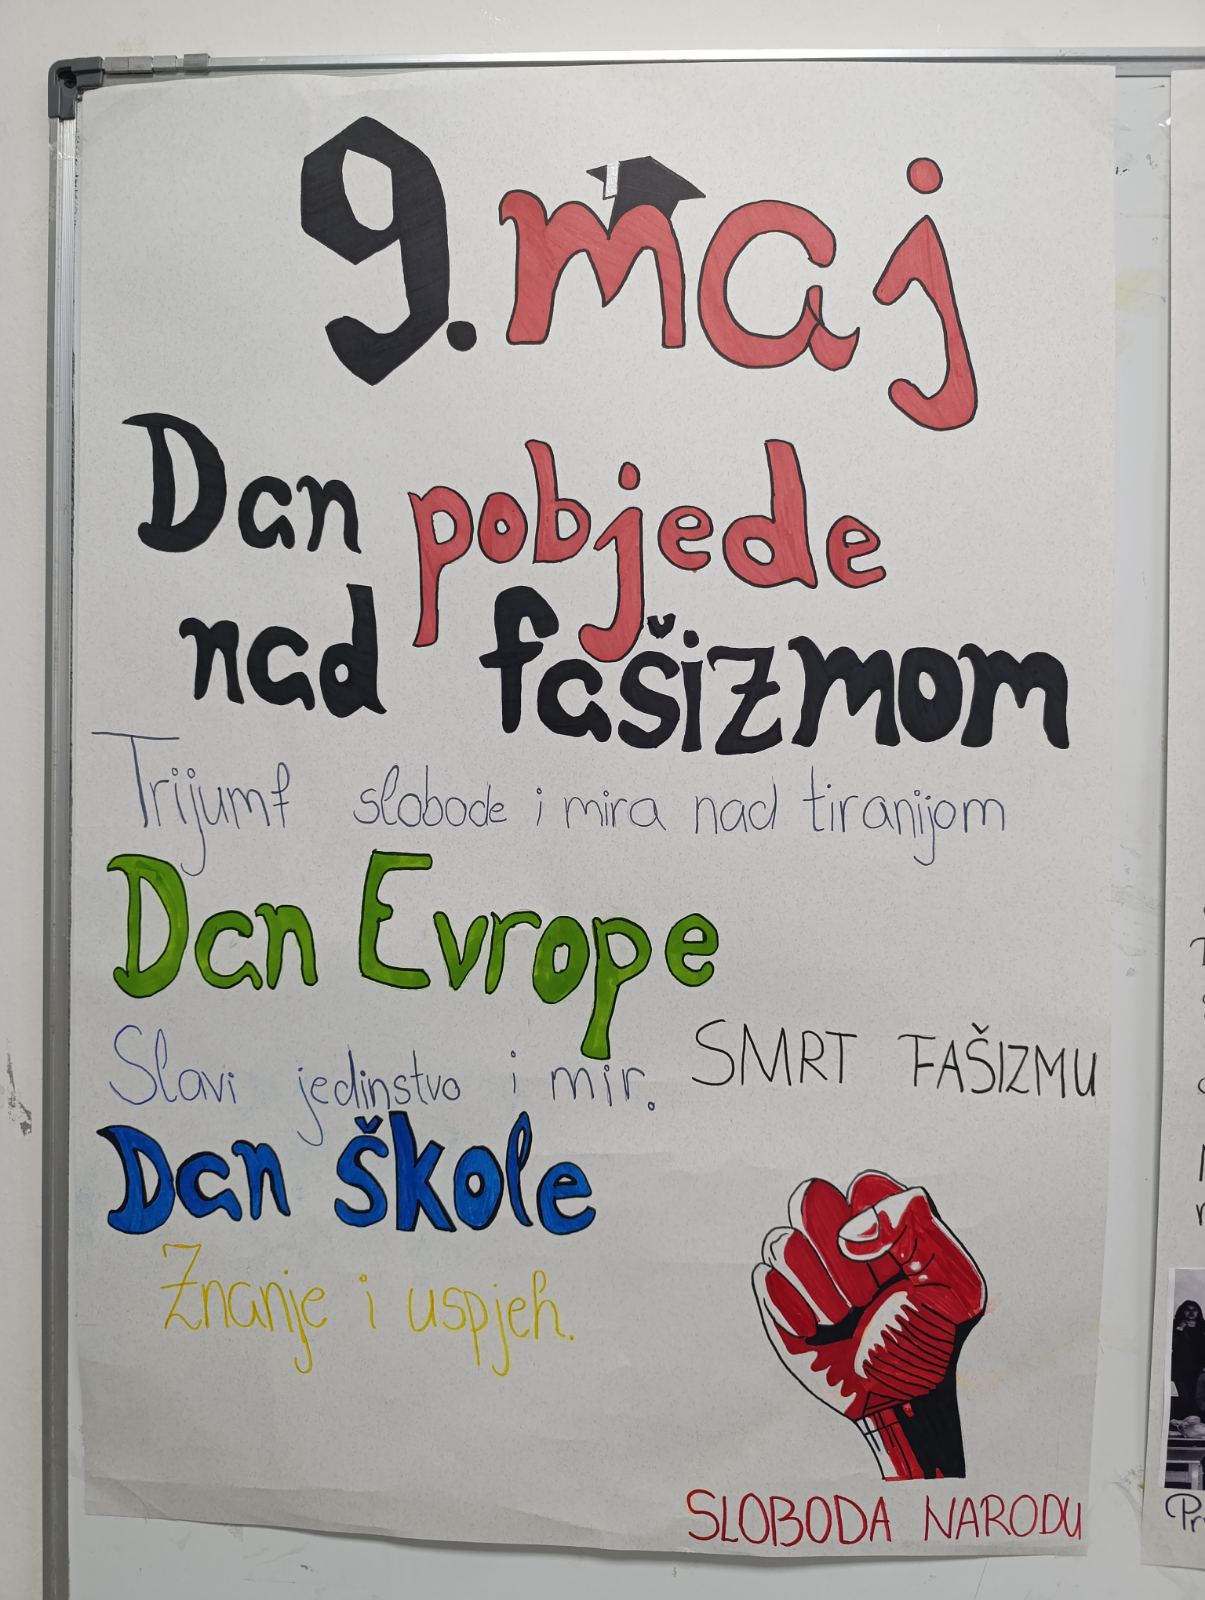 9. maj
Dan pobjede
nad fašizmom
Trijumf slobode i mira nad tiranijom
Dan Evrope
Slavi jedinstvo i mir.
SMRT FAŠIZMU
Dan škole
Znanje i uspjeh.
SLOBODA NARODU